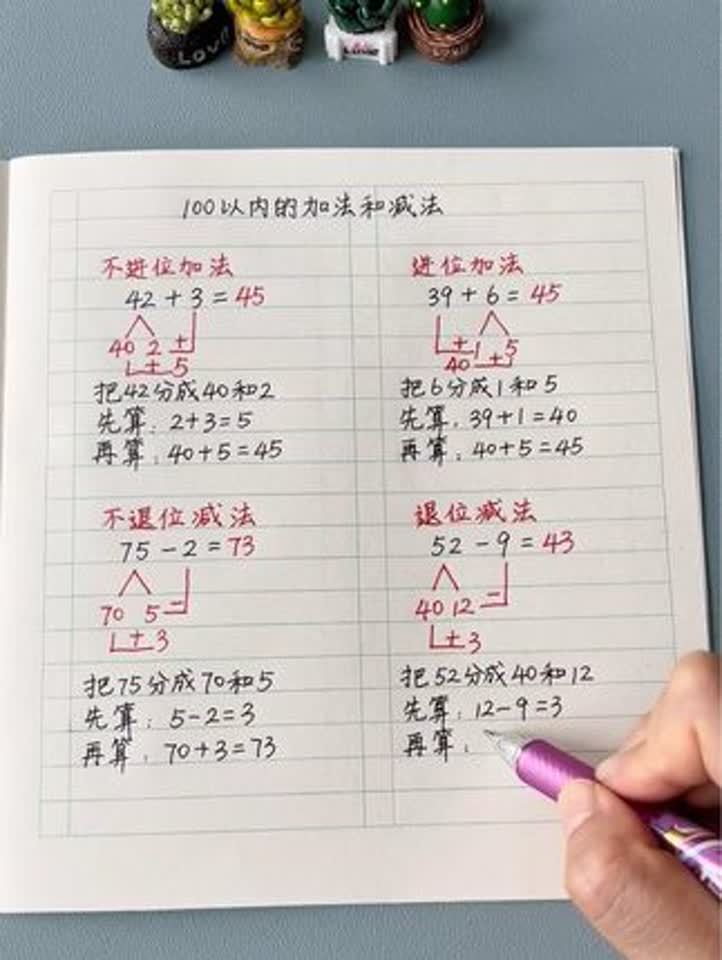 LOVE
100以内的加法和减法
不进位加法
42+3=45
40 2 +
+ 5
把42分成40和2
先算：2+3=5
再算：40+5=45
进位加法
39+6=45
+ 1 5
40 +
把6分成1和5
先算：39+1=40
再算：40+5=45
不退位减法
75-2=73
70 5 -
+ 3
把75分成70和5
先算：5-2=3
再算：70+3=73
退位减法
52-9=43
40 12 -
+ 3
把52分成40和12
先算：12-9=3
再算：